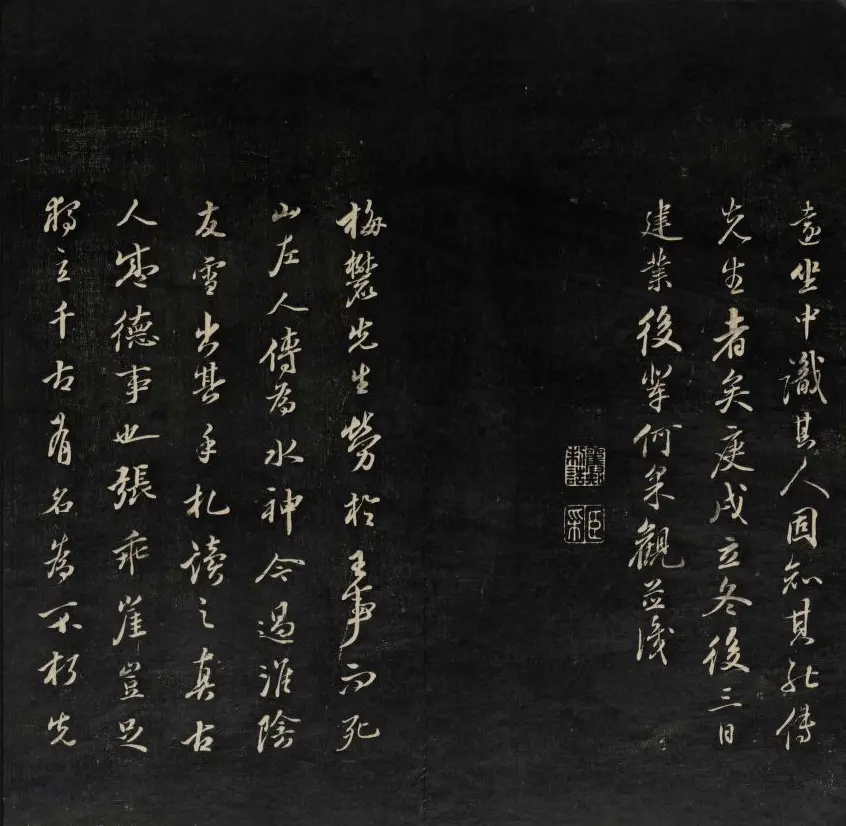 坐中識其人固知其能傳
先生者矣庚戌立冬後三日
建業後輩何采觀並識
臣采
梅先生勞於王事而死
山左人傳為水神今過淮陰
友雪出其手札讀之真古
人盛德事也張乖崖豈足
獨立千古有名為不朽先